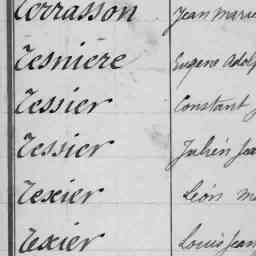 Terrasson Jean Marie
Tesniere Eugene Adolp
Tessier Constant
Tessier Julien Jea
Texier Léon Ma
Texier Louis Jean